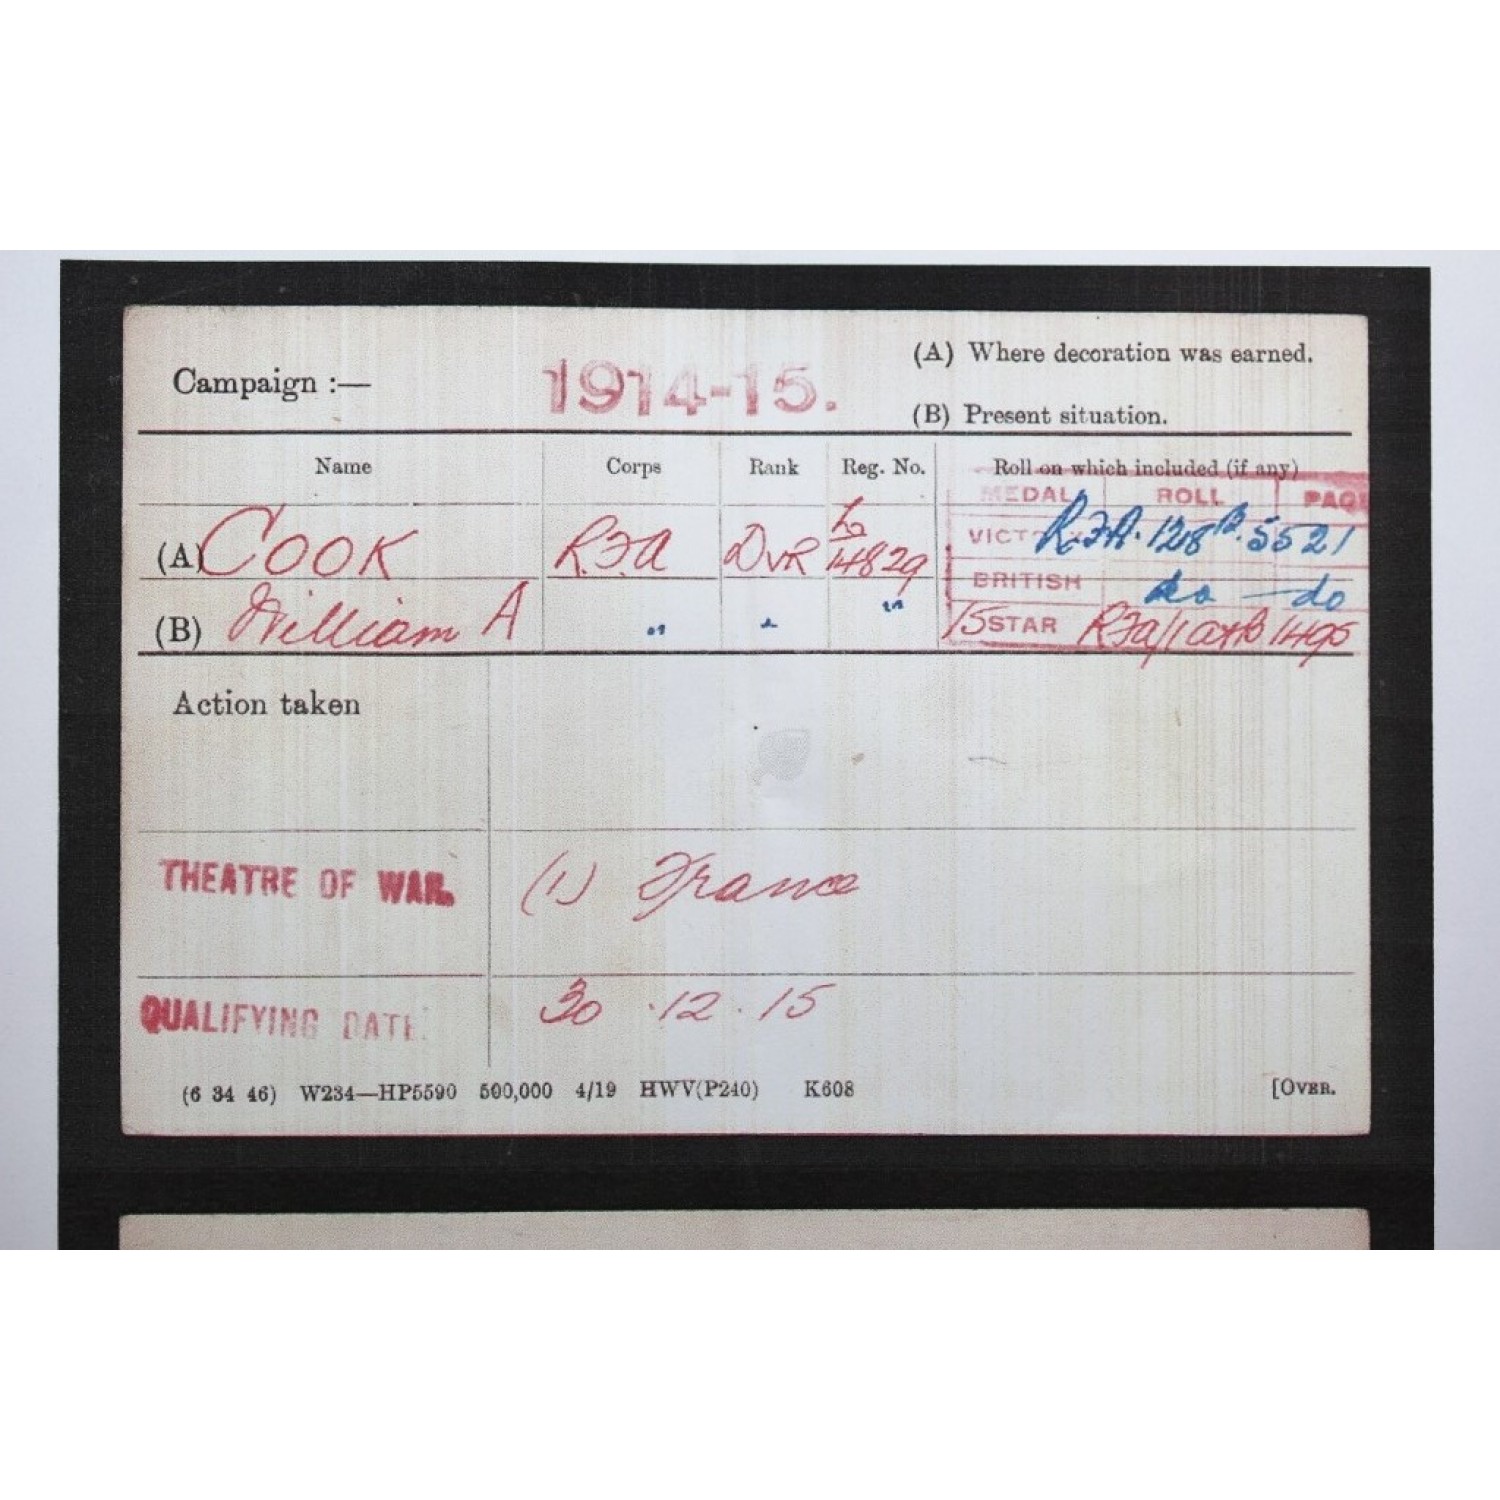 Campaign :— 1914-15. (A) Where decoration was earned.
(B) Present situation.
Name Corps Rank Reg. No. Roll on which included (if any)
MEDAL ROLL PAGE
(A) COOK R.F.A DVR L/14829 VICTORY R.F.A. 128B. 5521
BRITISH do — do
(B) William A " " " 15 STAR RFA/1 1495
Action taken
THEATRE OF WAR. (1) France
QUALIFYING DATE. 30 . 12 . 15
(6 34 46) W234—HP5590 500,000 4/19 HWV(P240) K608 [OVER.